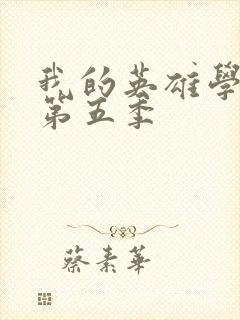 我的英雄學
第五季
蔡素華